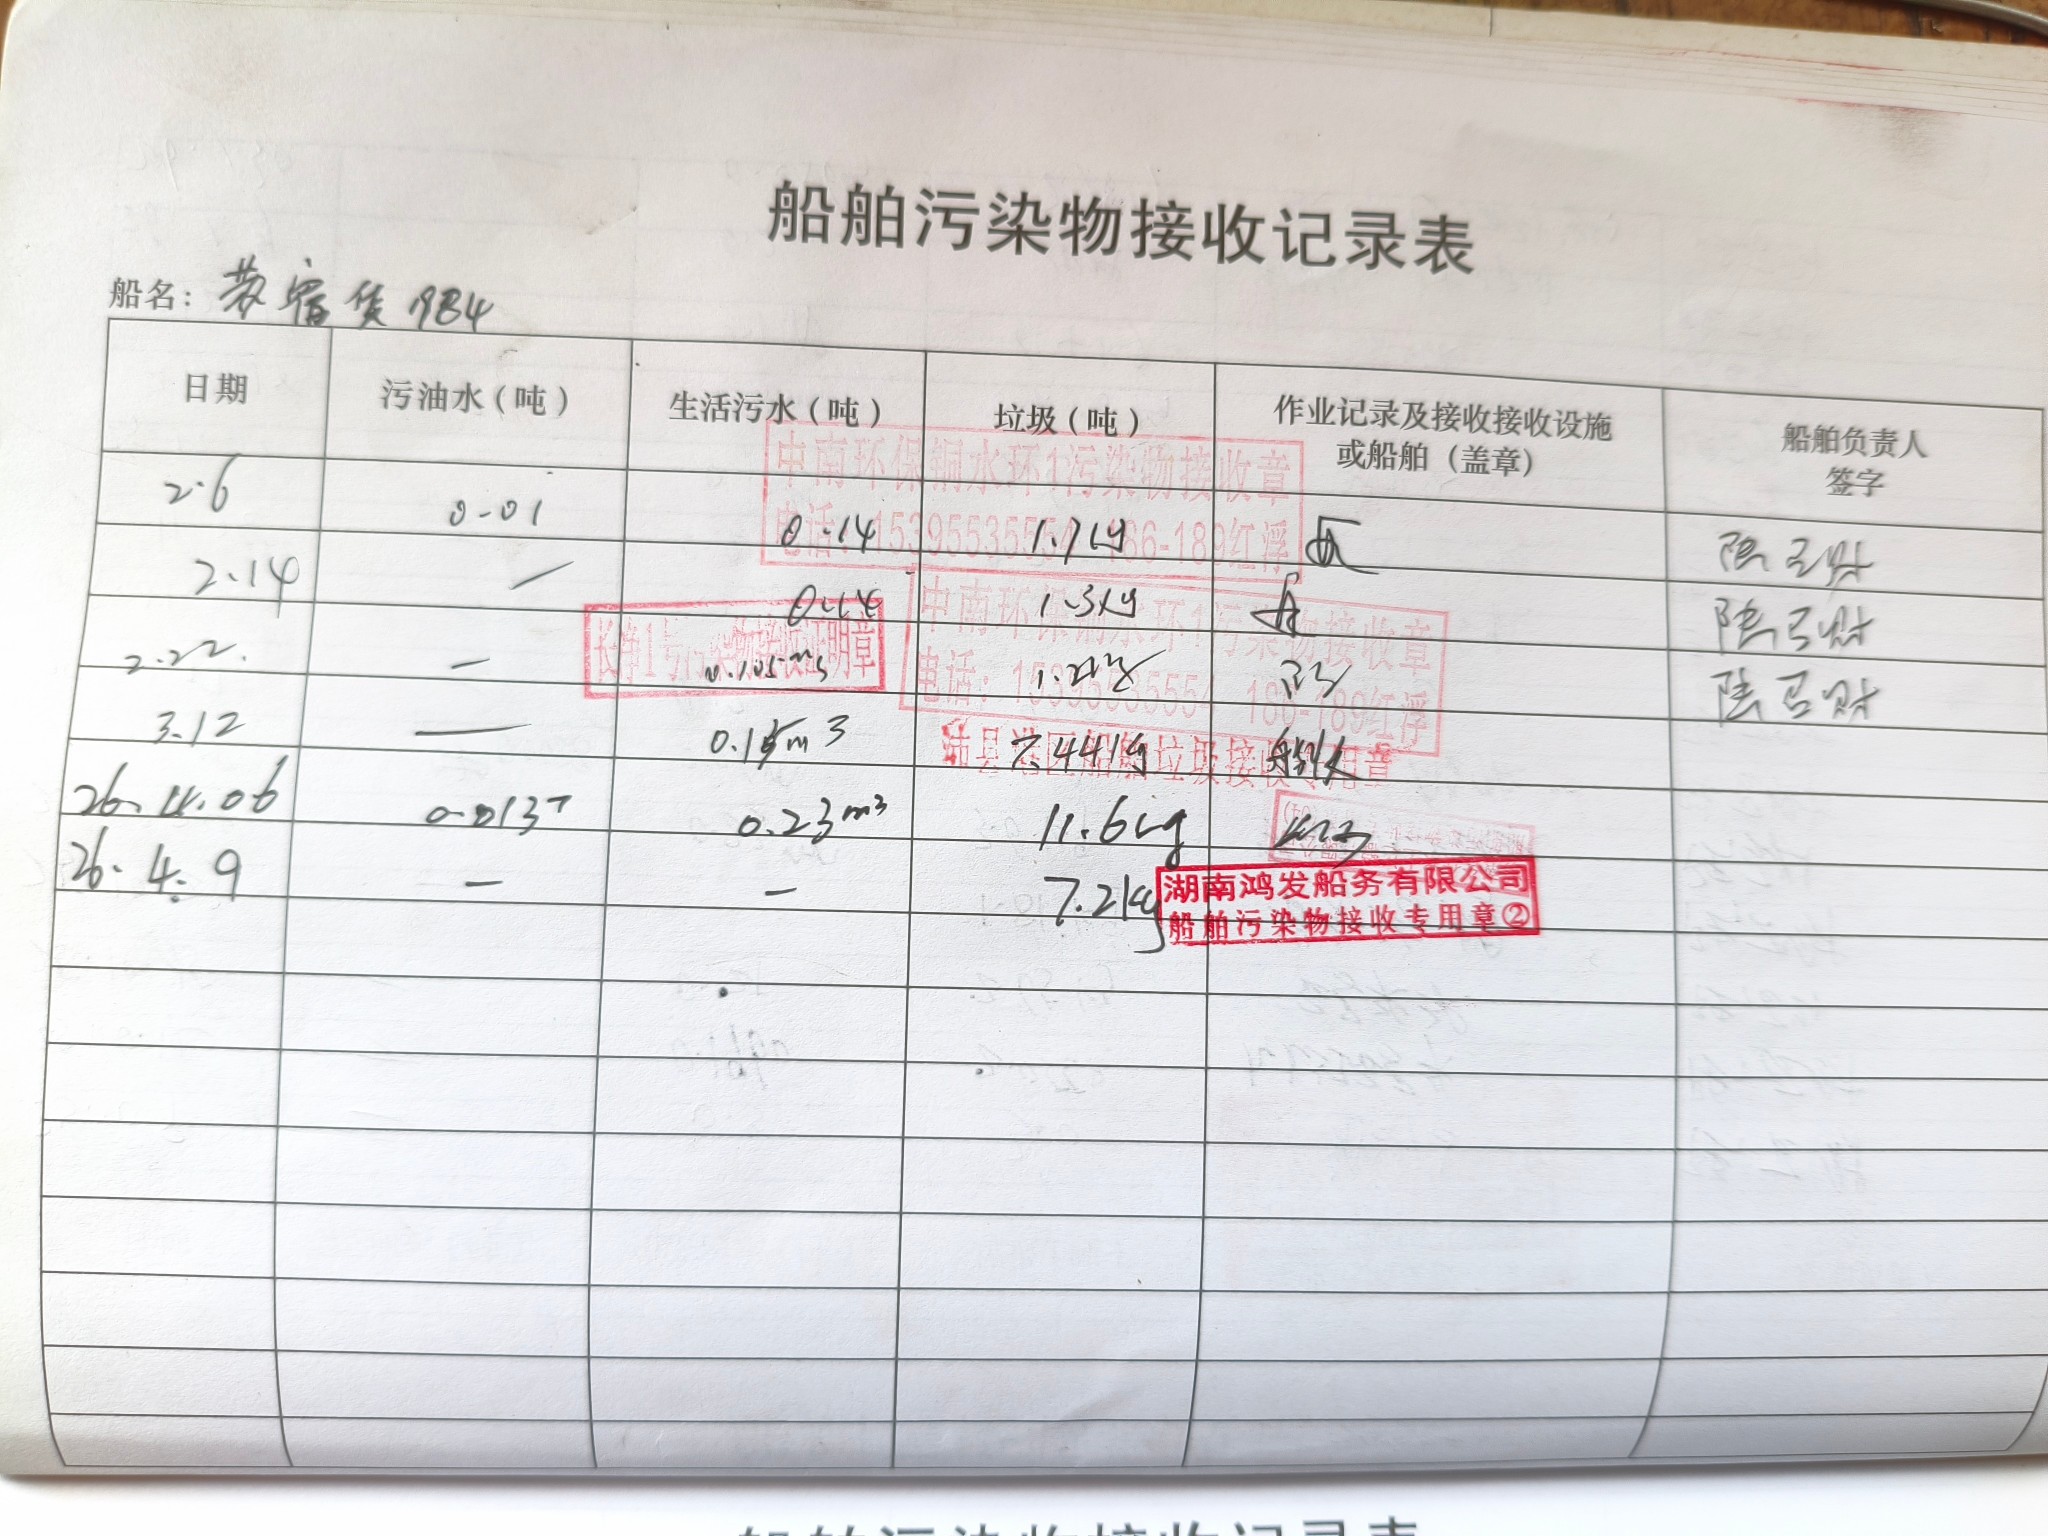 船舶污染物接收记录表
船名: 苏宿货984
日期 污油水（吨） 生活污水（吨） 垃圾（吨） 作业记录及接收接收设施或船舶（盖章） 船舶负责人签字
中南环保铜水环1污染物接收章
电话:15395535554 186-189红浮
2.6 0.01 0.14 1.7kg
2.14 — 0.14 1.3kg
中南环保铜水环1污染物接收章
电话:15395535554 186-189红浮
长净1号污染物接收证明章
2.22. — 0.105m3
3.12 — m3 7.44kg
沛县港区船舶垃圾接收专用章
26.4.06 0.013T 0.23m³ 11.6kg
26.4.9 — — 7.2kg
湖南鸿发船务有限公司
船舶污染物接收专用章②
船舶污染物接收记录表